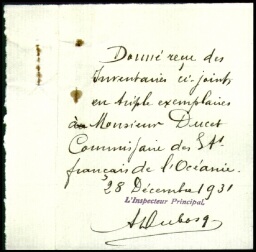 Donné reçu des
Inventaires ci-joints
en triple exemplaires
à Monsieur Ducet
Commissaire des Ets
français de l'Océanie.
28 Décembre 1931
L'Inspecteur Principal,